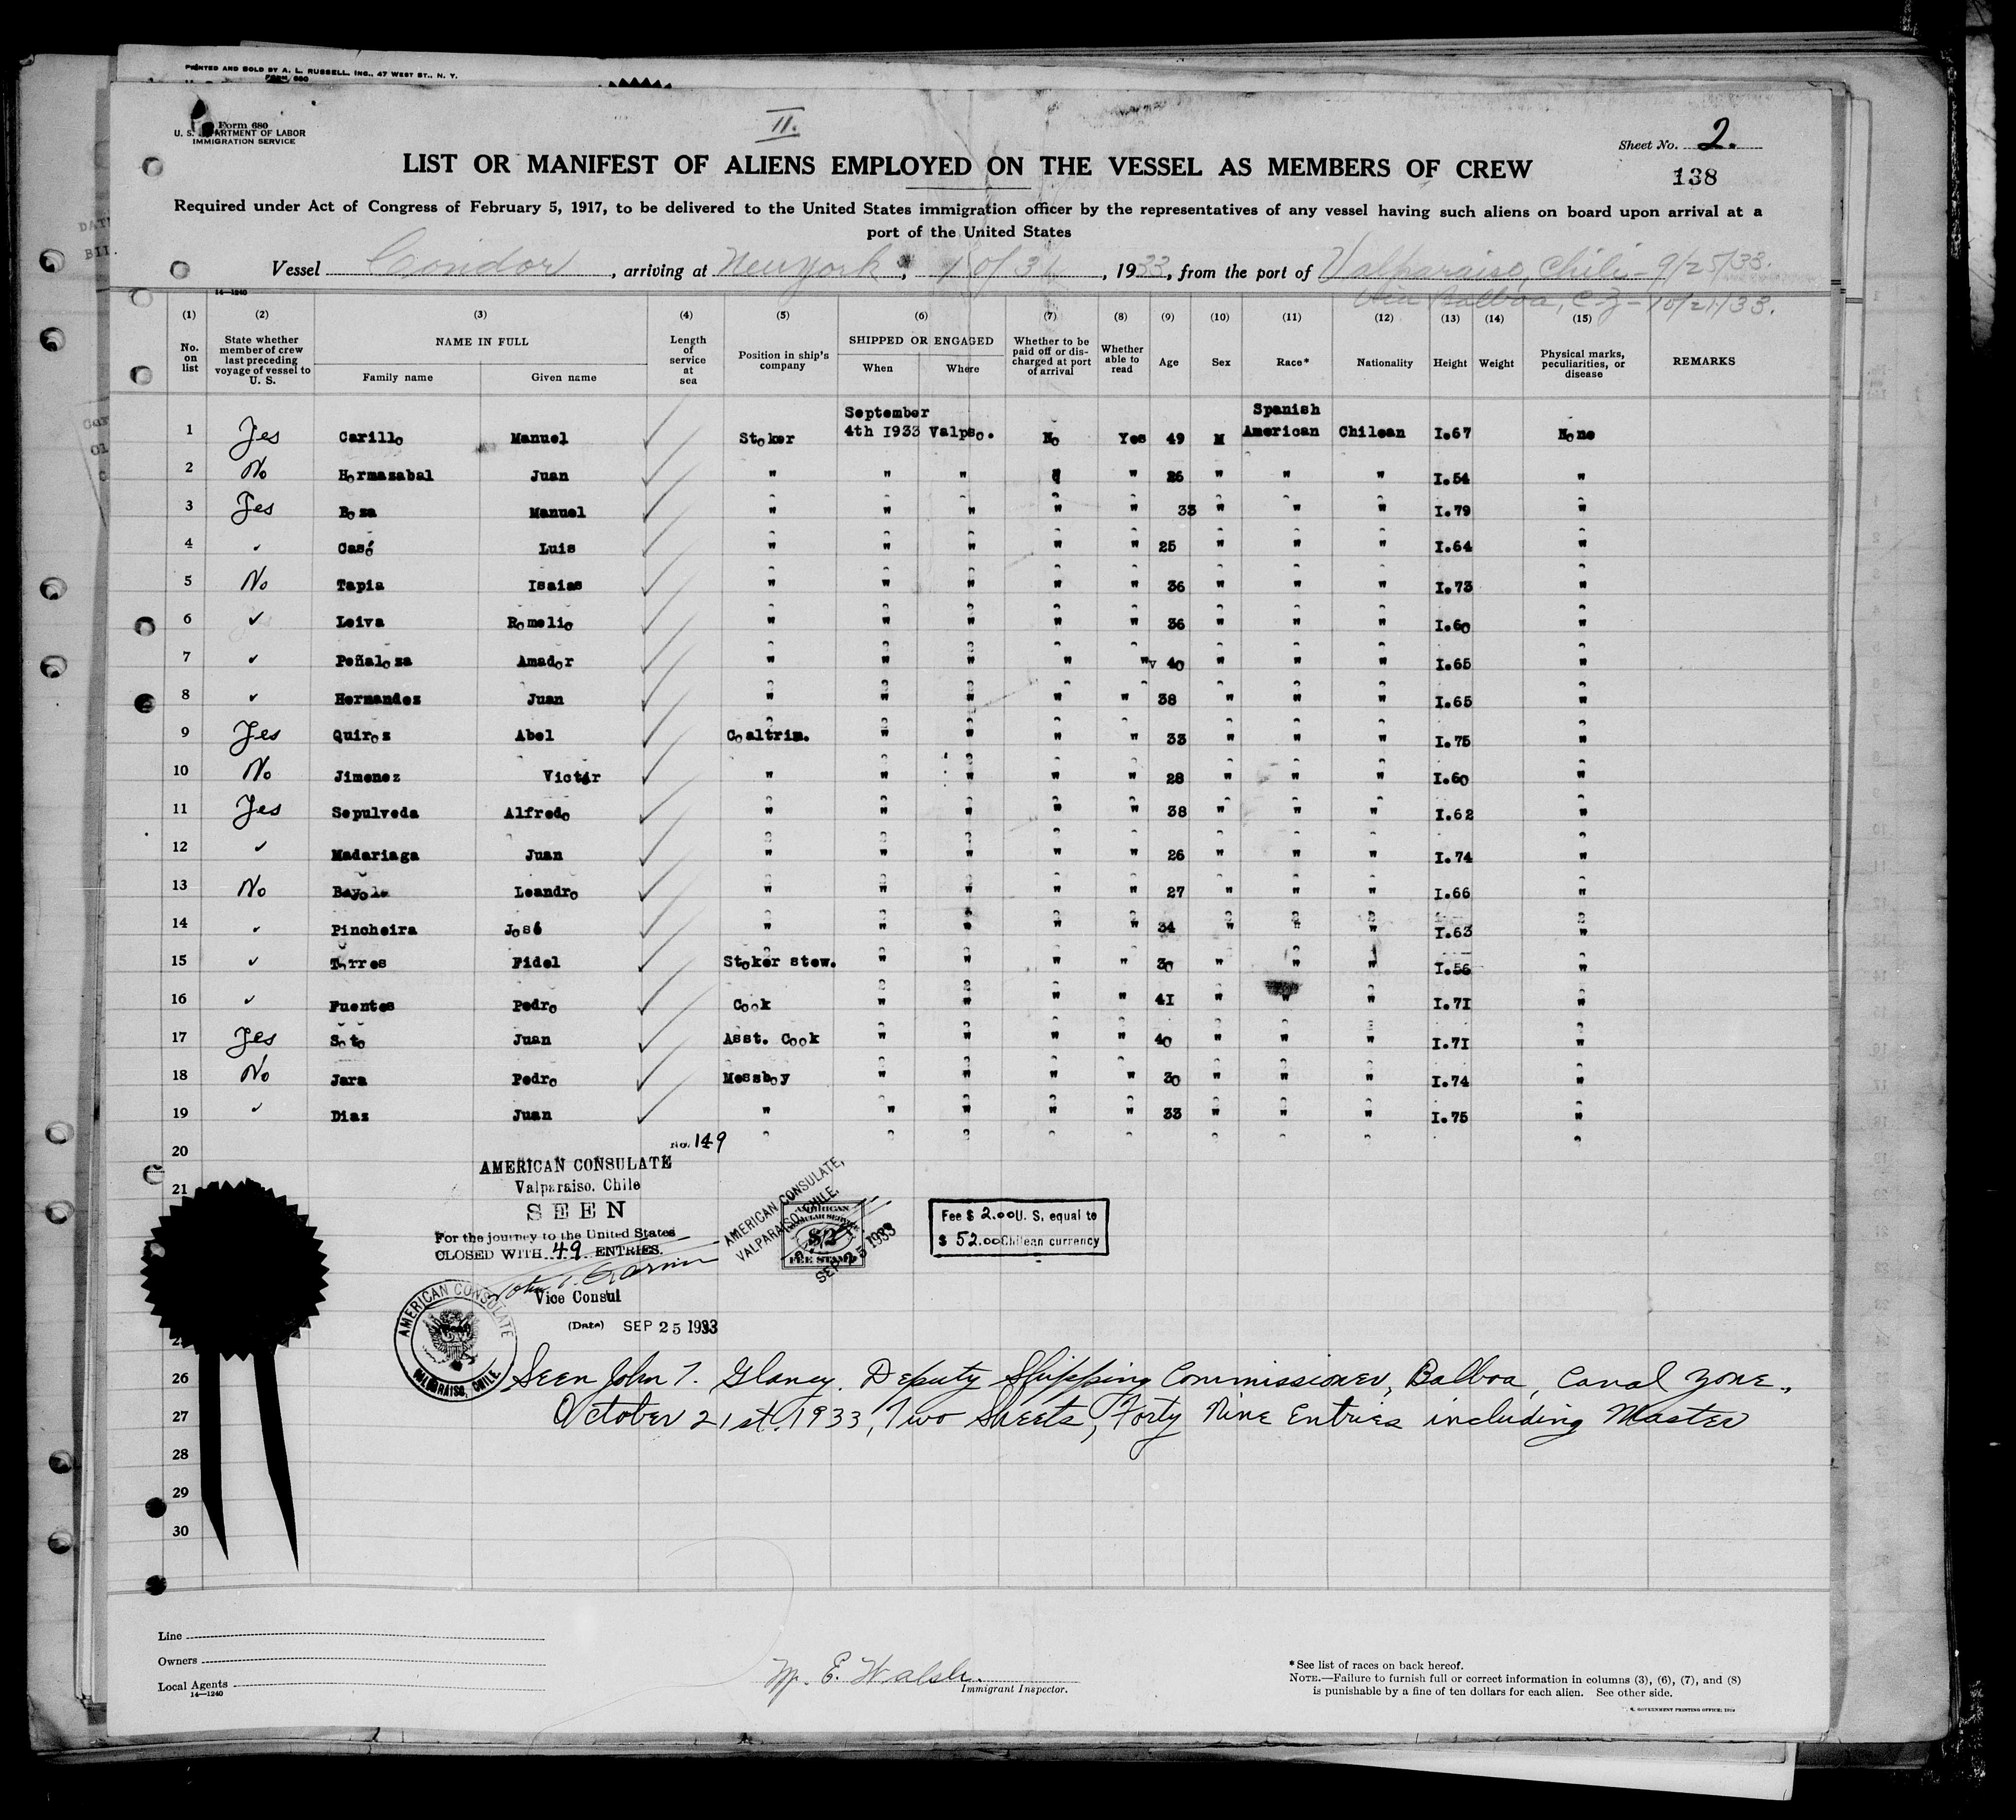 PRINTED AND SOLD BY A. L. RUSSELL, INC., 47 WEST ST., N. Y.
FORM 680
Form 680
U. S. DEPARTMENT OF LABOR
IMMIGRATION SERVICE
II.
Sheet No. 2.
138
LIST OR MANIFEST OF ALIENS EMPLOYED ON THE VESSEL AS MEMBERS OF CREW
Required under Act of Congress of February 5, 1917, to be delivered to the United States immigration officer by the representatives of any vessel having such aliens on board upon arrival at a
port of the United States
Vessel Condor, arriving at New York, 10/31, 1933, from the port of Valparaiso, Chile - 9/25/33.
Via Balboa, C Z - 10/21/33.
14—1240
(1) (2) (3) (4) (5) (6) (7) (8) (9) (10) (11) (12) (13) (14) (15)
No. on list State whether member of crew last preceding voyage of vessel to U. S. NAME IN FULL Family name Given name Length of service at sea Position in ship's company SHIPPED OR ENGAGED When Where Whether to be paid off or discharged at port of arrival Whether able to read Age Sex Race* Nationality Height Weight Physical marks, peculiarities, or disease REMARKS
September Spanish
1 Yes Carillo Manuel Stoker 4th 1933 Valpso. No Yes 49 M American Chilean I.67 None
2 No Hormazabal Juan " " " " " 26 " " " I.54 "
3 Yes Roza Manuel " " " " " 33 " " " I.79 "
4 ✓ Casó Luis " " " " " 25 " " " I.64 "
5 No Tapia Isaias " " " " " 36 " " " I.73 "
6 ✓ Leiva Romelio " " " " " 36 " " " I.60 "
7 ✓ Peñaloza Amador " " " " " 40 " " " I.65 "
8 ✓ Hernandez Juan " " " " " 38 " " " I.65 "
9 Yes Quiroz Abel Coaltrim. " " " " 33 " " " I.75 "
10 No Jimenez Victor " " " " " 28 " " " I.60 "
11 Yes Sepulveda Alfredo " " " " " 38 " " " I.62 "
12 ✓ Madariaga Juan " " " " " 26 " " " I.74 "
13 No Leandro " " " " " 27 " " " I.66 "
14 ✓ Pincheira José " " " " " 34 " " " I.63 "
15 ✓ Torres Fidel Stoker stew. " " " " 30 " " " I.56 "
16 ✓ Fuentes Pedro Cook " " " " 41 " " " I.7I "
17 Yes Soto Juan Asst. Cook " " " " 40 " " " I.7I "
18 No Jara Pedro Messboy " " " " 30 " " " I.74 "
19 ✓ Diaz Juan " " " " " 33 " " " I.75 "
20
No. 149
AMERICAN CONSULATE
Valparaiso, Chile
21
SEEN
For the journey to the United States
CLOSED WITH 49 ENTRIES.
Vice Consul
(Date) SEP 25 1933
AMERICAN CONSULATE
VALPARAISO, CHILE
AMERICAN CONSULATE,
VALPARAISO, CHILE.
SEP 25 1933
AMERICAN
CONSULAR SERVICE
$2
FEE STAMP
Fee $ 2.00 U. S. equal to
$ 52.00 Chilean currency
26 Seen John T. Glancy. Deputy Shipping Commissioner, Balboa, Canal Zone.,
27 October 21st. 1933, Two Sheets, Forty Nine Entries including Master
28
29
30
Line
Owners
Local Agents
14—1240
W. E. Walsh.
Immigrant Inspector.
*See list of races on back hereof.
NOTE.—Failure to furnish full or correct information in columns (3), (6), (7), and (8)
is punishable by a fine of ten dollars for each alien. See other side.
GOVERNMENT PRINTING OFFICE: